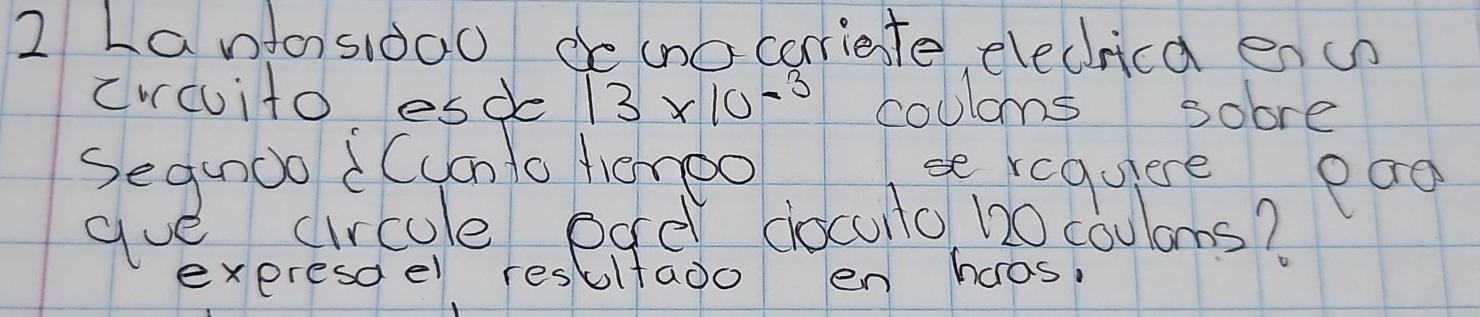 2 La intensidad de una corriente eléctrica en un
circuito es de 13 x 10⁻³ couloms sobre
Segundo ¿Cuanto tiempo se requiere para
que circule por el circuito 120 couloms?
expresa el resultado en horas.